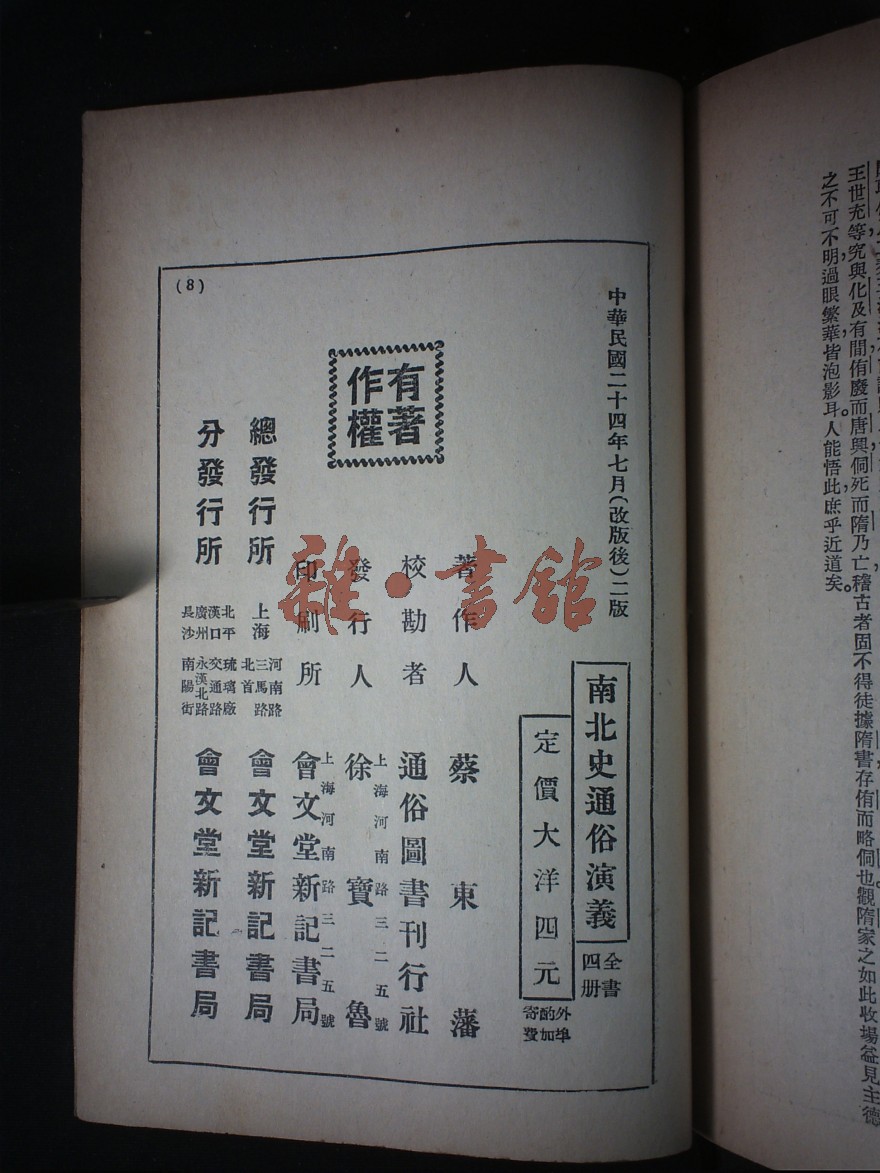 王世充等究與化及有間侑廢而唐興侗死而隋乃亡稽古者固不得徒據隋書存侑而略侗也觀隋家之如此收場益見主德
之不可不明過眼繁華皆泡影耳。人能悟此庶乎近道矣。
中華民國二十四年七月(改版後)二版
南北史通俗演義
全書四册
定價大洋四元
外埠酌加寄費
著作人 蔡東藩
校勘者 通俗圖書刊行社
上海河南路三二五號
發行人 徐寶魯
上海河南路三二五號
印刷所 會文堂新記書局
有著作權
總發行所 上海 河南路三馬路北首 會文堂新記書局
分發行所 北平 琉璃廠 漢口 交通路 廣州 永漢北路 長沙 南陽街 會文堂新記書局
(8)
雜·書館